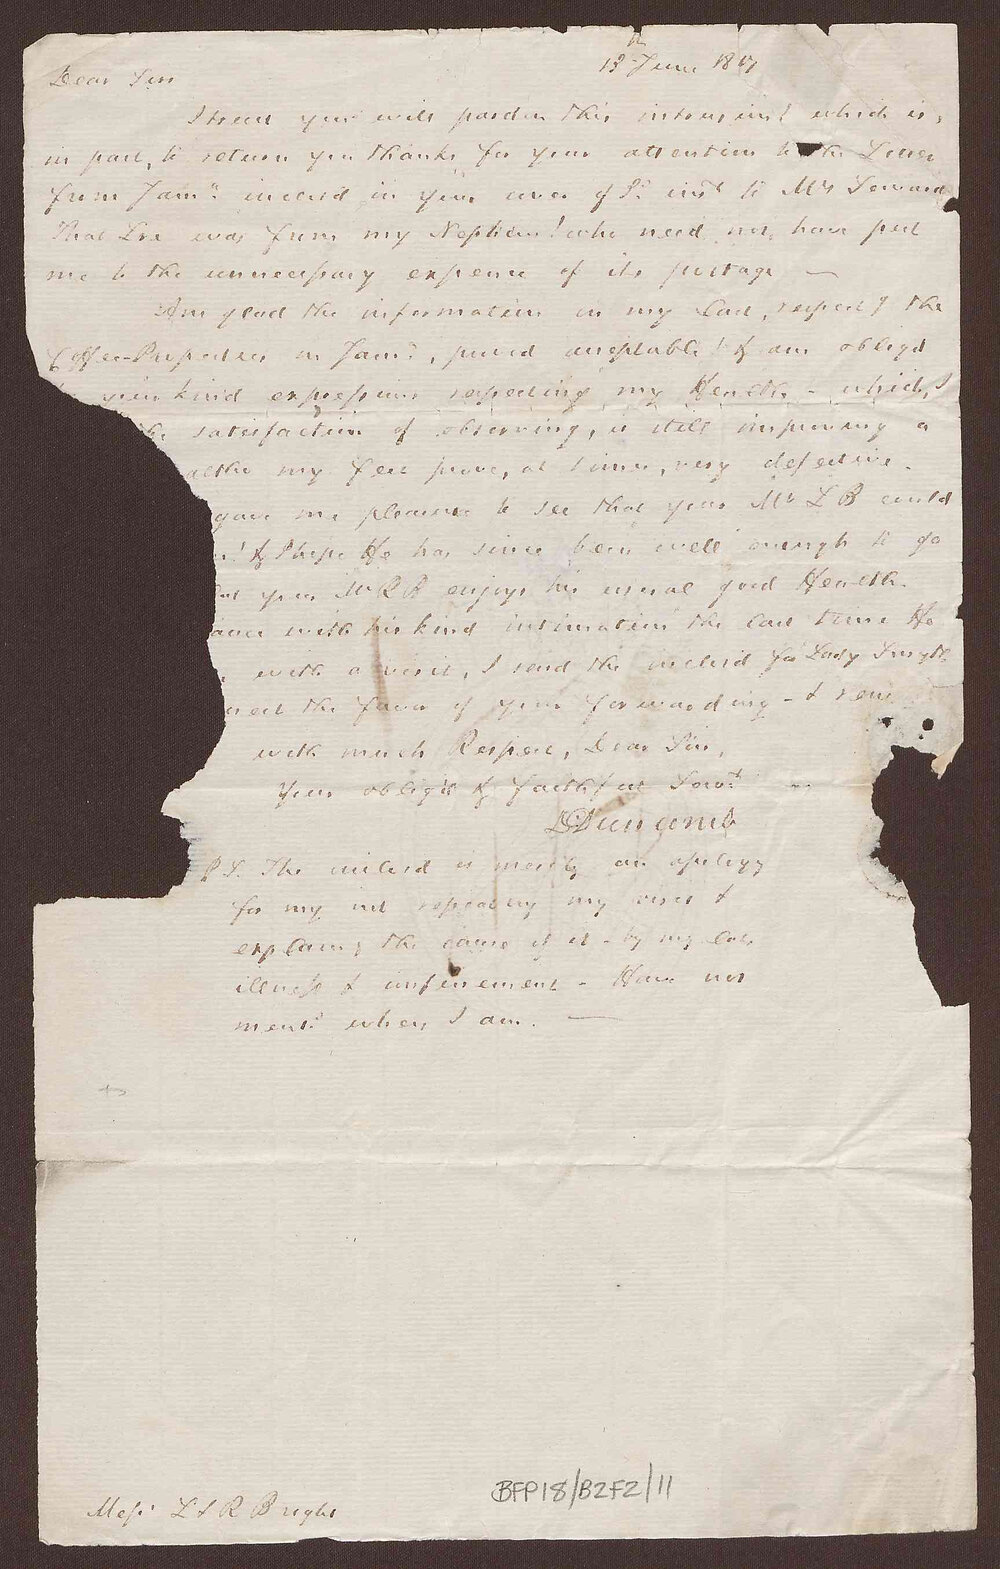 13th June 18
Dear Sirs
I trust you will pardon this intrusion! which is,
in part, to return you thanks for your attention to the Letter
from Jama. inclosed in your cover of inst. to Mrs Seward
That Lre was from my Nephew! who need not have put
me to the unnecessary expence of its postage —
Am glad the information in my last, respectg the
Coffee-Properties in Jama., proved acceptable! & am obliged
your kind expressions respecting my Health - which, I
the satisfaction of observing, is still improving
altho my feet prove, at times, very defective.
gave me pleasure to see that your Mr L B could
! & I hope He has since been well enough to go
your Mr R B enjoys his usual good Health.
with his kind intimation the last time He
with a visit, I send the inclosed for Lady Smyth
the favor of your forwarding - &
with much Respect, Dear Sirs,
Your obliged & faithful Servt
Duncomb
P.S. The inclosed is merely an apology
for my not repeating my visit &
explaing the cause of it - by my late
illness & confinement - Have not
mentd where I am. —
Messrs L & R Bright
BFP18/B2F2/11